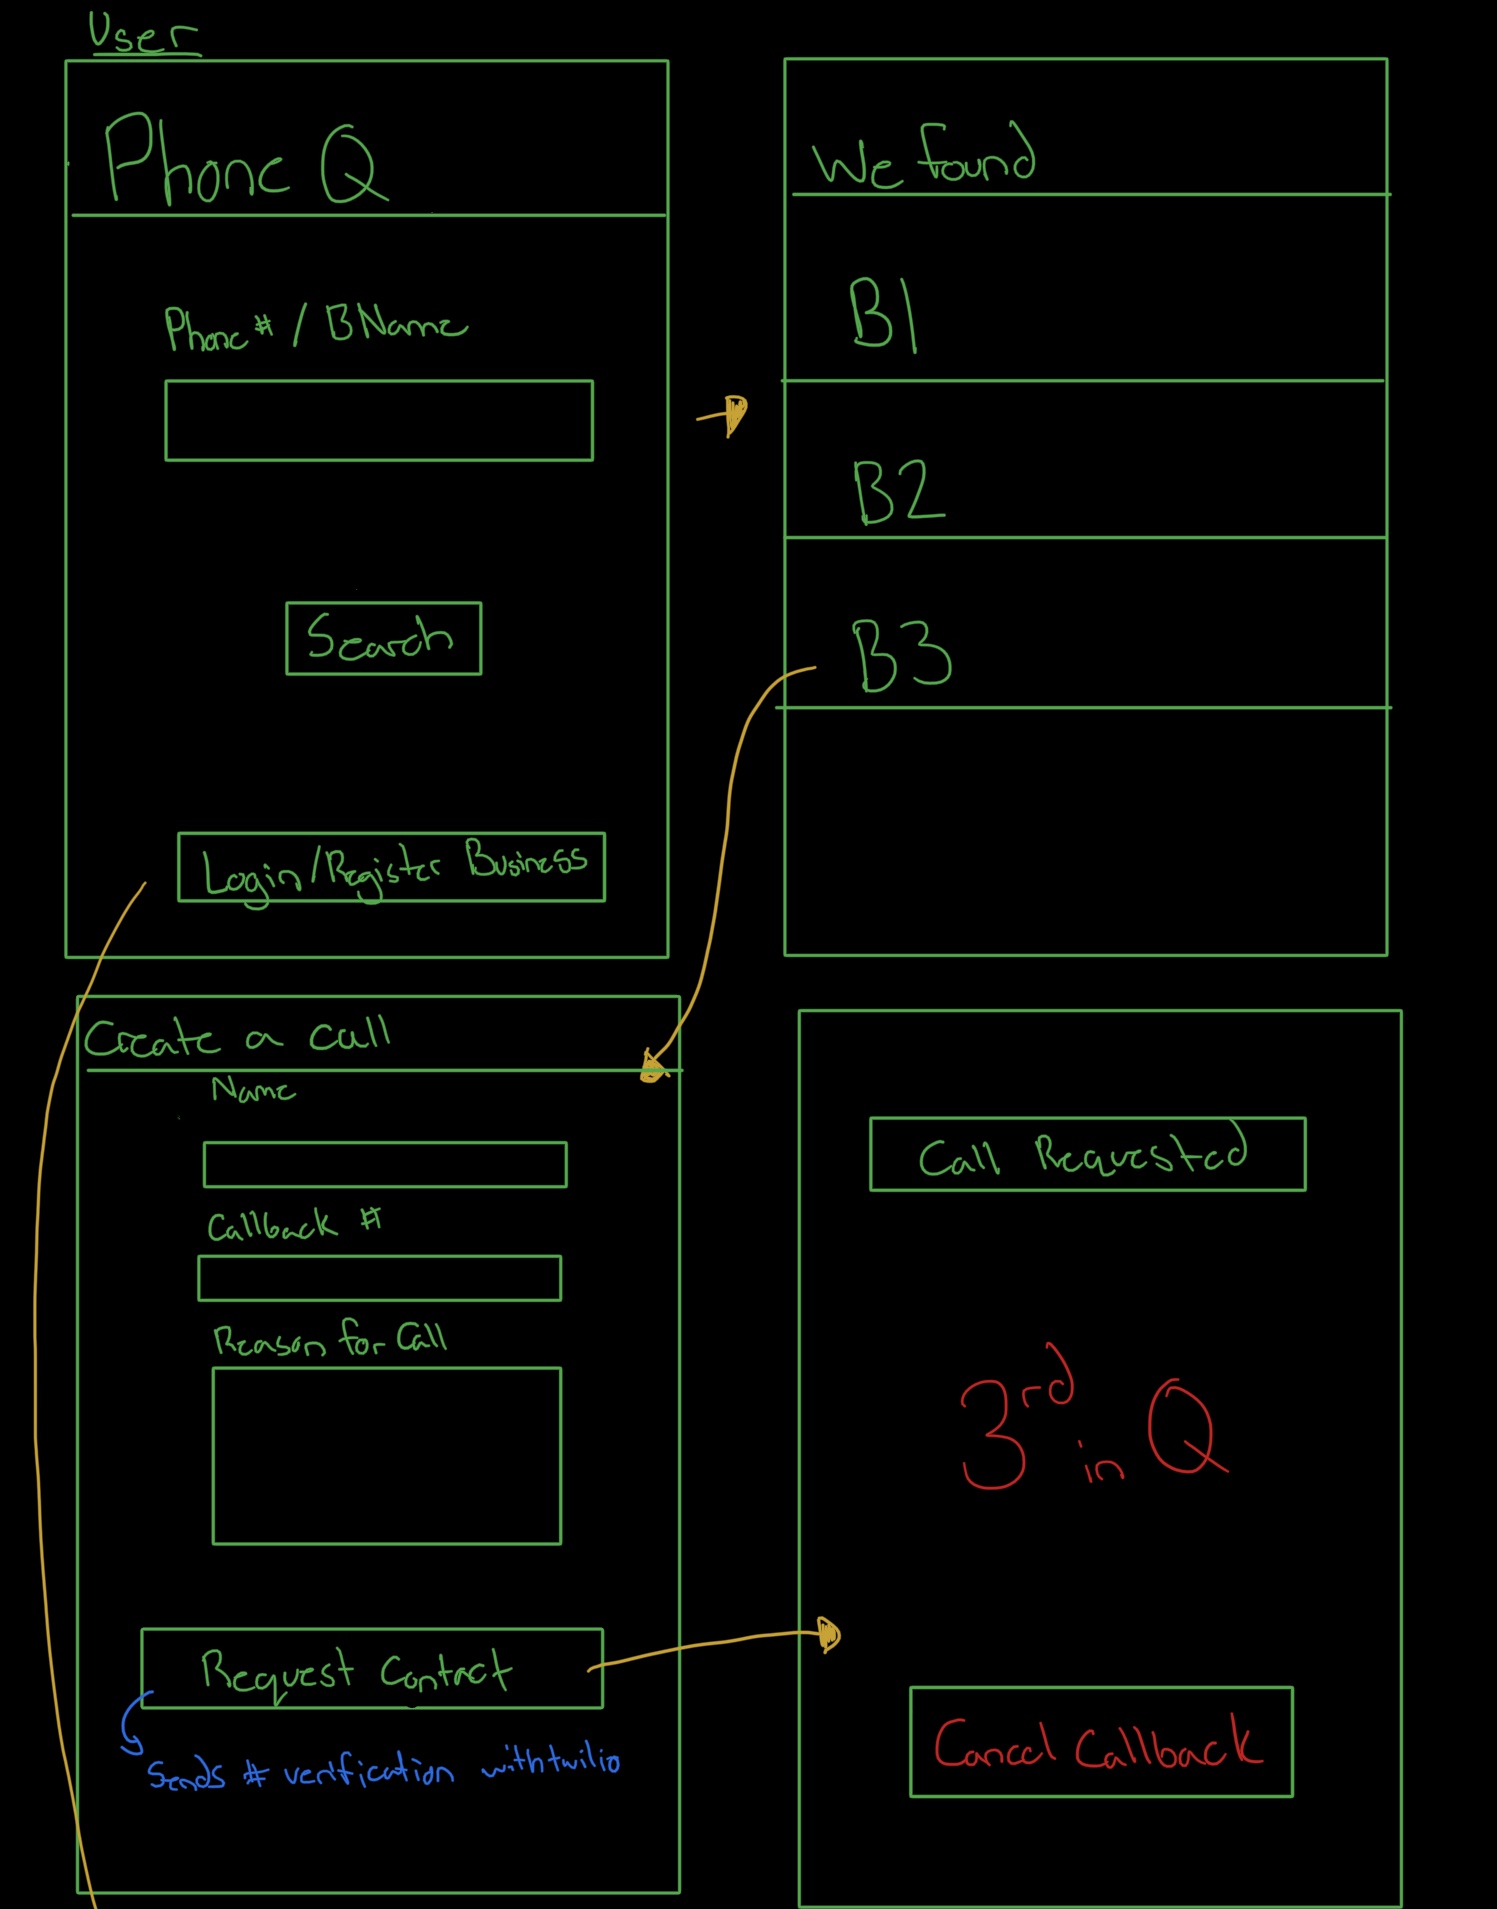 User
Phone Q
Phone # / BName
Search
Login/Register Business
We found
B1
B2
B3
Create a call
Name
Callback #
Reason for Call
Request Contact
Sends # verification with twilio
Call Requested
3rd in Q
Cancel Callback